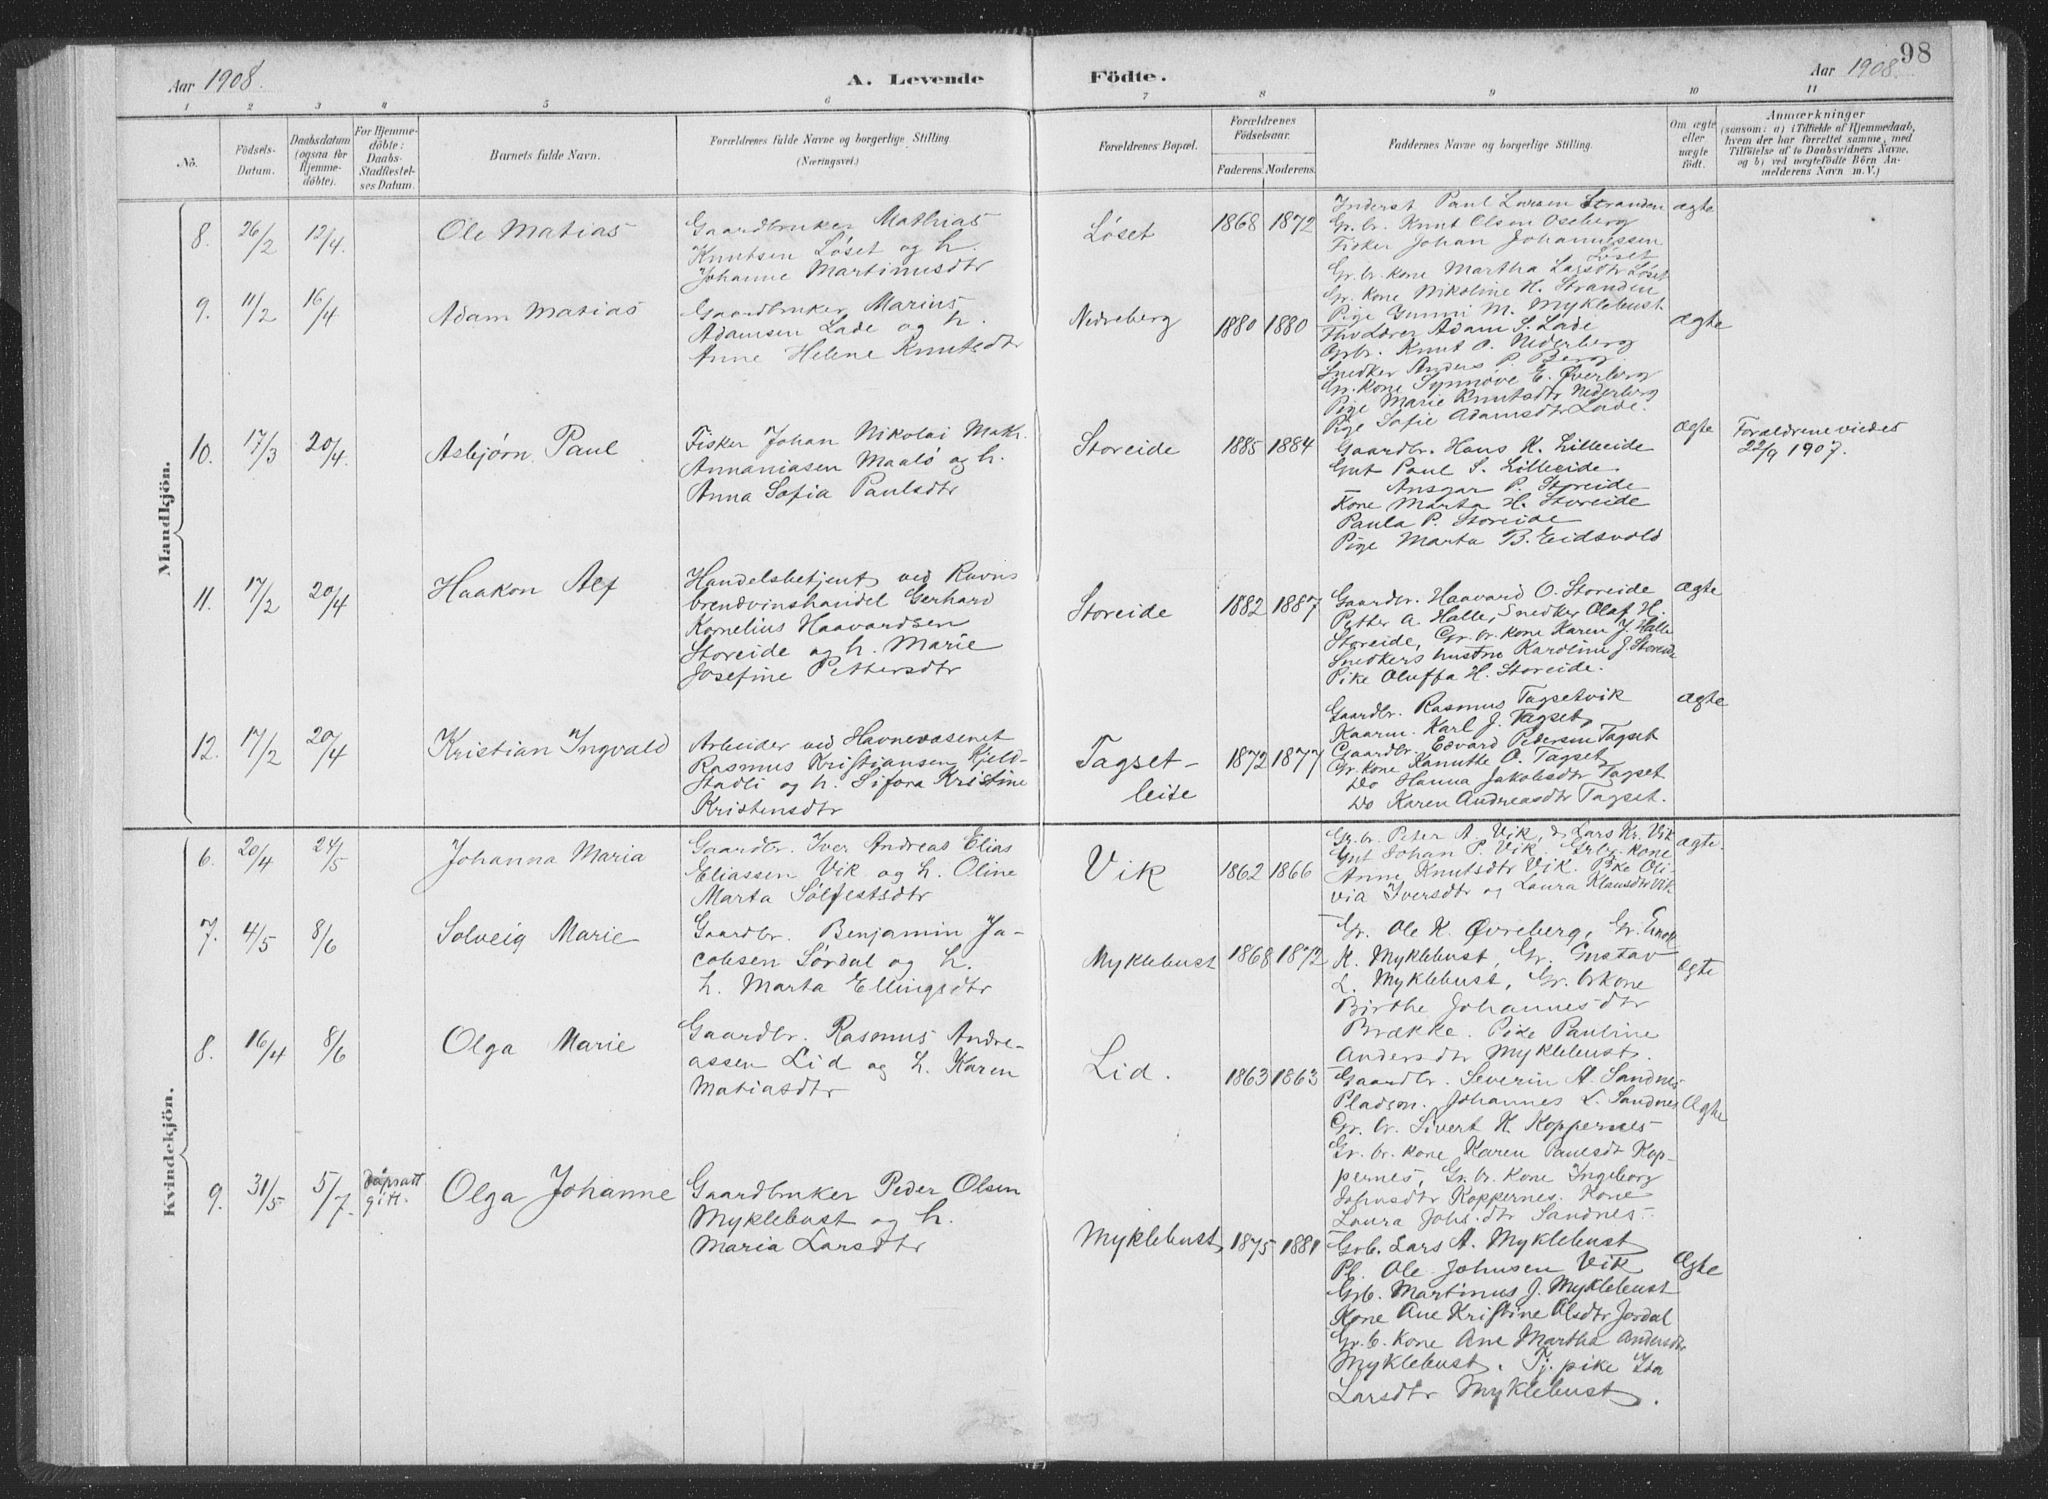 98
Aar 1908.
A. Levende
Födte.
Aar 1908.
1 2 3 4 5 6 7 8 9 10 11
No.
Födsels-
Datum.
Daabsdatum
(ogsaa for
Hjemme-
döbte).
For Hjemme-
döbte:
Daabs-
Stadfæstel-
ses Datum.
Barnets fulde Navn.
Forældrenes fulde Navne og borgerlige Stilling
(Næringsvei.)
Forældrenes Bopæl.
Forældrenes
Födselsaar.
Faderens. Moderens.
Faddernes Navne og borgerlige Stilling.
Om ægte
eller
uægte
födt.
Anmærkninger
(saasom: a) i Tilfælde af Hjemmedaab,
hvem der har forrettet samme, med
Tilföielse af to Daabsvidners Navne,
og b) ved uægtefödte Börn An-
melderens Navn m. V.)
Mandkjön.
8. 26/2 12/4. Ole Matias
Gaardbruker Mathias
Knutsen Løset og h.
Johanne Martinusdtr
Løset 1868 1872
Inderst Paul Larsen Stranden
Gr. br. Knut Olsen Oseberg
Fisker Johan Johannessen
Løset
Gr. br. kone Martha Larsdtr Løset
Gr. Kone Nikoline H. Stranden
Pige Gunni M. Myklebust
ægte
9. 11/2 16/4 Adam Matias
Gaardbruker Marius
Adamsen Lade og h.
Anne Helene Knutsdtr
Nedreberg 1880 1880
Fhv Lærer Adam S. Lade
Grbr. Knut O. Nederberg
Snedker Anders P. Berg.
Gr. Kone Synnøve E. Øverberg
Pige Marie Knutsdtr Nederberg
Pige Sofie Adamsdtr Lade.
ægte
10. 17/3 20/4. Asbjørn Paul
Fisker Johan Nikolai Math.
Annaniasen Maalø og h.
Anna Sofia Paulsdtr
Storeide 1885 1884
Gaardbr. Hans K. Lilleeide
Gut Paul S. Lilleeide
— Ansgar P. Storeide
Kone Marta H. Storeide
Paula P. Storeide
Pige Marta B. Eidsvold
ægte
Forældrene viedes
22/9 1907.
11. 17/2 20/4 Haakon Alf
Handelsbetjent ved Ravns
brendvinshandel Gerhard
Kornelius Haavardsen
Storeide og h. Marie
Josefine Pettersdtr
Storeide 1882 1887
Gaardbr. Haavard O. Storeide
Petter A. Halle, Snedker Olaf H.
Storeide, Gr. br. kone Karen J. Halle
Snedkers hustru Karoline J. Storeide
Pike Oluffa H. Storeide.
ægte
12. 17/2 20/4 Kristian Ingvald
Arbeider ved Havnevæsenet
Rasmus Kristiansen Kjeld-
stadli og h. Sifora Kristine
Kristensdtr
Tagset-
leite 1872 1877
Gaardbr. Rasmus Tagsetvik
Kaarm. Karl J. Tagset,
Gaardbr. Edvard Pedersen Tagset
Gr. kone Kanutte O. Tagset,
Do Hanna Jakobsdtr Tagset
Do Karen Andreasdtr Tagset.
ægte
Kvindekjön.
6. 20/4 24/5 Johanna Maria
Gaardbr. Iver Andreas Elias
Eliassen Vik og h. Oline
Marta Sølfestsdtr
Vik 1862 1866
Gr. br. Peter A. Vik, do Lars Kr. Vik
Gut Johan P. Vik. Grbr. kone
Anne Knutsdtr Vik. Pike Oli-
via Iversdtr og Laura Klausdtr Vik.
ægte.
7. 4/5 8/6 Solveig Marie
Gaardbr. Benjamin Ja-
cobsen Sørdal og h.
h. Marta Ellingsdtr
Myklebust 1868 1872
Gr. Ole K. Øvreberg, Gr. Enok
K. Myklebust, Gr. Gustav
L. Myklebust, Gr. brkone
Birthe Johannesdtr
Brække. Pike Pauline
Andersdtr Myklebust.
Ægte
8. 16/4 8/6 Olga Marie
Gaardbr. Rasmus Andre-
assen Lid og h. Karen
Matiasdtr
Lid. 1863 1863
Gaardbr. Severin A. Sandnes
Pladsm. Johannes L. Sandnes
Gr. br. Sivert H. Koppernes
Gr. br. kone Karen Paulsdt Kop-
pernes, Gr. br. Kone Ingeborg
Johnsdtr Koppernes. Kone
Laura Johs.dtr Sandnes.
Ægte
9. 31/5 5/7. Dåpsatt.
gitt. Olga Johanne
Gaardbruker Peder Olsen
Myklebust og h.
Maria Larsdtr
Myklebust 1875 1881
Grb. Lars A. Myklebust
Pl. Ole Johnsen Vik
Grb. Martinus J. Myklebust
Kone Ane Kristine Olsdtr Jordal
Gr. b. kone Ane Martha Andersdtr
Myklebust. Tj. pike Ida
Larsdtr Myklebust.
Ægte